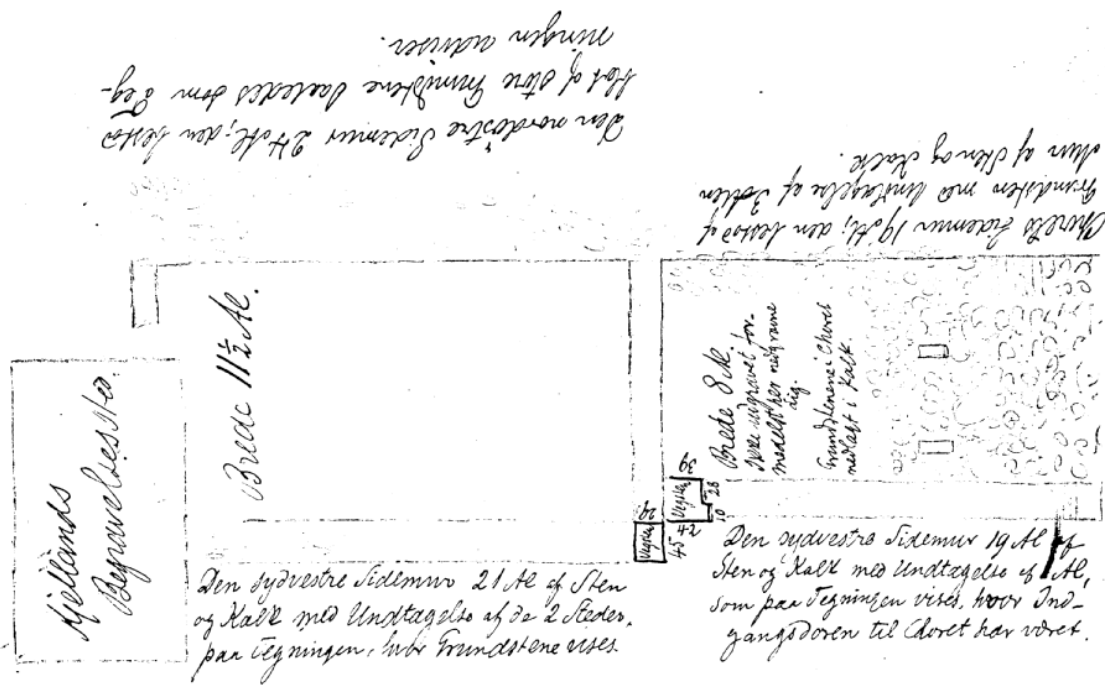 Den nordøstre Sidemur 24 Al; den bestod
blot af store Grundstene saaledes som Teg-
ningen udviser.
Chorets Sidemur 19 Al; den bestod af
Grundsten med Undtagelse af
Mur af Sten og Kalk.
Kiellands
Begravelsessted.
Brede 11½ Al.
Brede 8 Al.
Ikke udgravet for-
medelst her nedgravne
Lig.
Grundstenene i Choret
nedlagt i Kalk.
39
Vegsten
28
10
42
29
Vegsten
45
Den sydvestre Sidemur 21 Al af Sten
og Kalk med Undtagelse af de 2 Steder,
paa Tegningen, hvor Grundstene vises.
Den sydvestre Sidemur 19 Al af
Sten og Kalk med Undtagelse af 1 Al,
som paa Tegningen vises, hvor Ind-
gangsdøren til Choret har været.